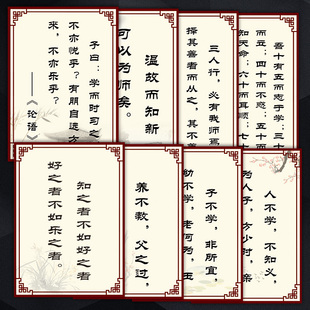 子曰：学而时习之
不亦悦乎？有朋自远方
来，不亦乐乎？
——《论语》
温故而知新
可以为师矣。
三人行，必有我师焉
择其善者而从之，其不善
吾十有五而志乎学；三十
而立；四十而不惑；五十而
知天命；六十而耳顺；七十
知之者不如好之者
好之者不如乐之者。
养不教，父之过，
子不学，非所宜，
幼不学，老何为，玉
人不学，不知义，
为人子，方少时，亲